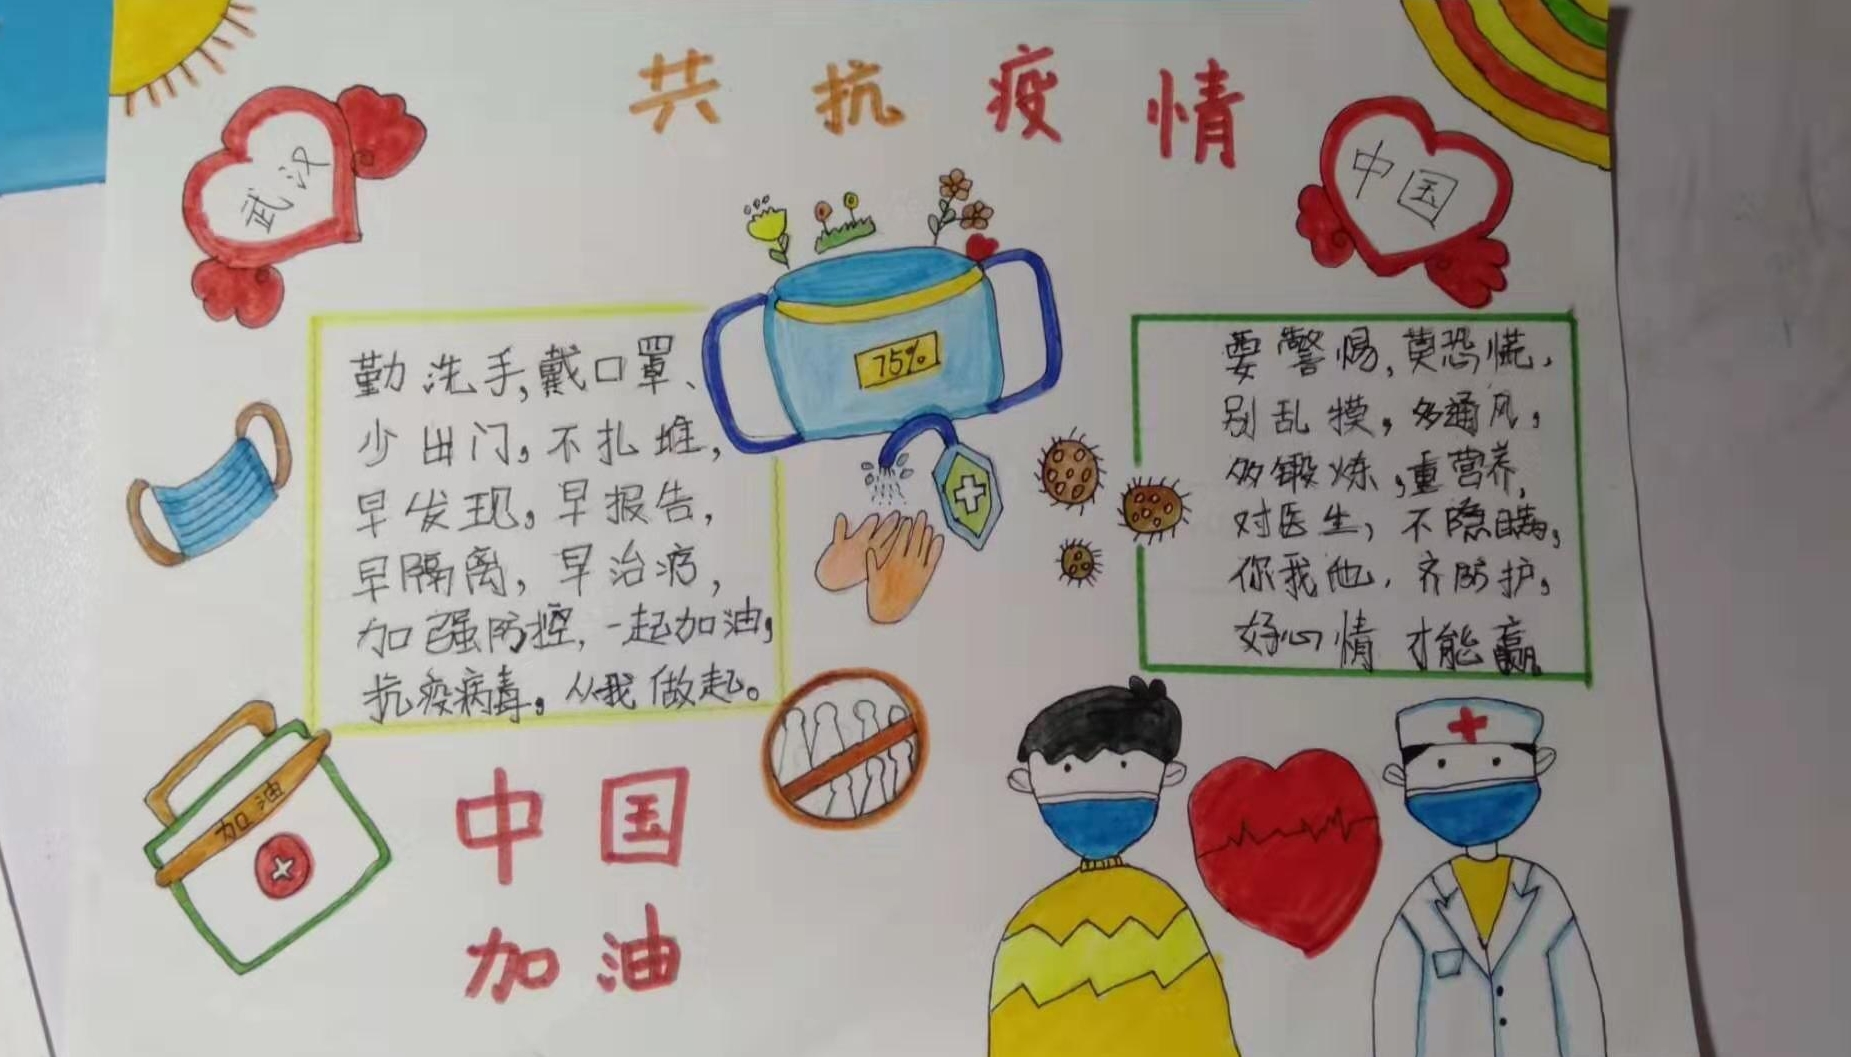 共抗疫情
武汉
中国
75%
勤洗手,戴口罩、
少出门,不扎堆,
早发现,早报告,
早隔离,早治疗,
加强防控,一起加油,
抗疫病毒,从我做起。
要警惕,莫恐慌,
别乱摸,多通风,
多锻炼,重营养,
对医生,不隐瞒,
你我他,齐防护,
好心情 才能赢
加油
中国
加油